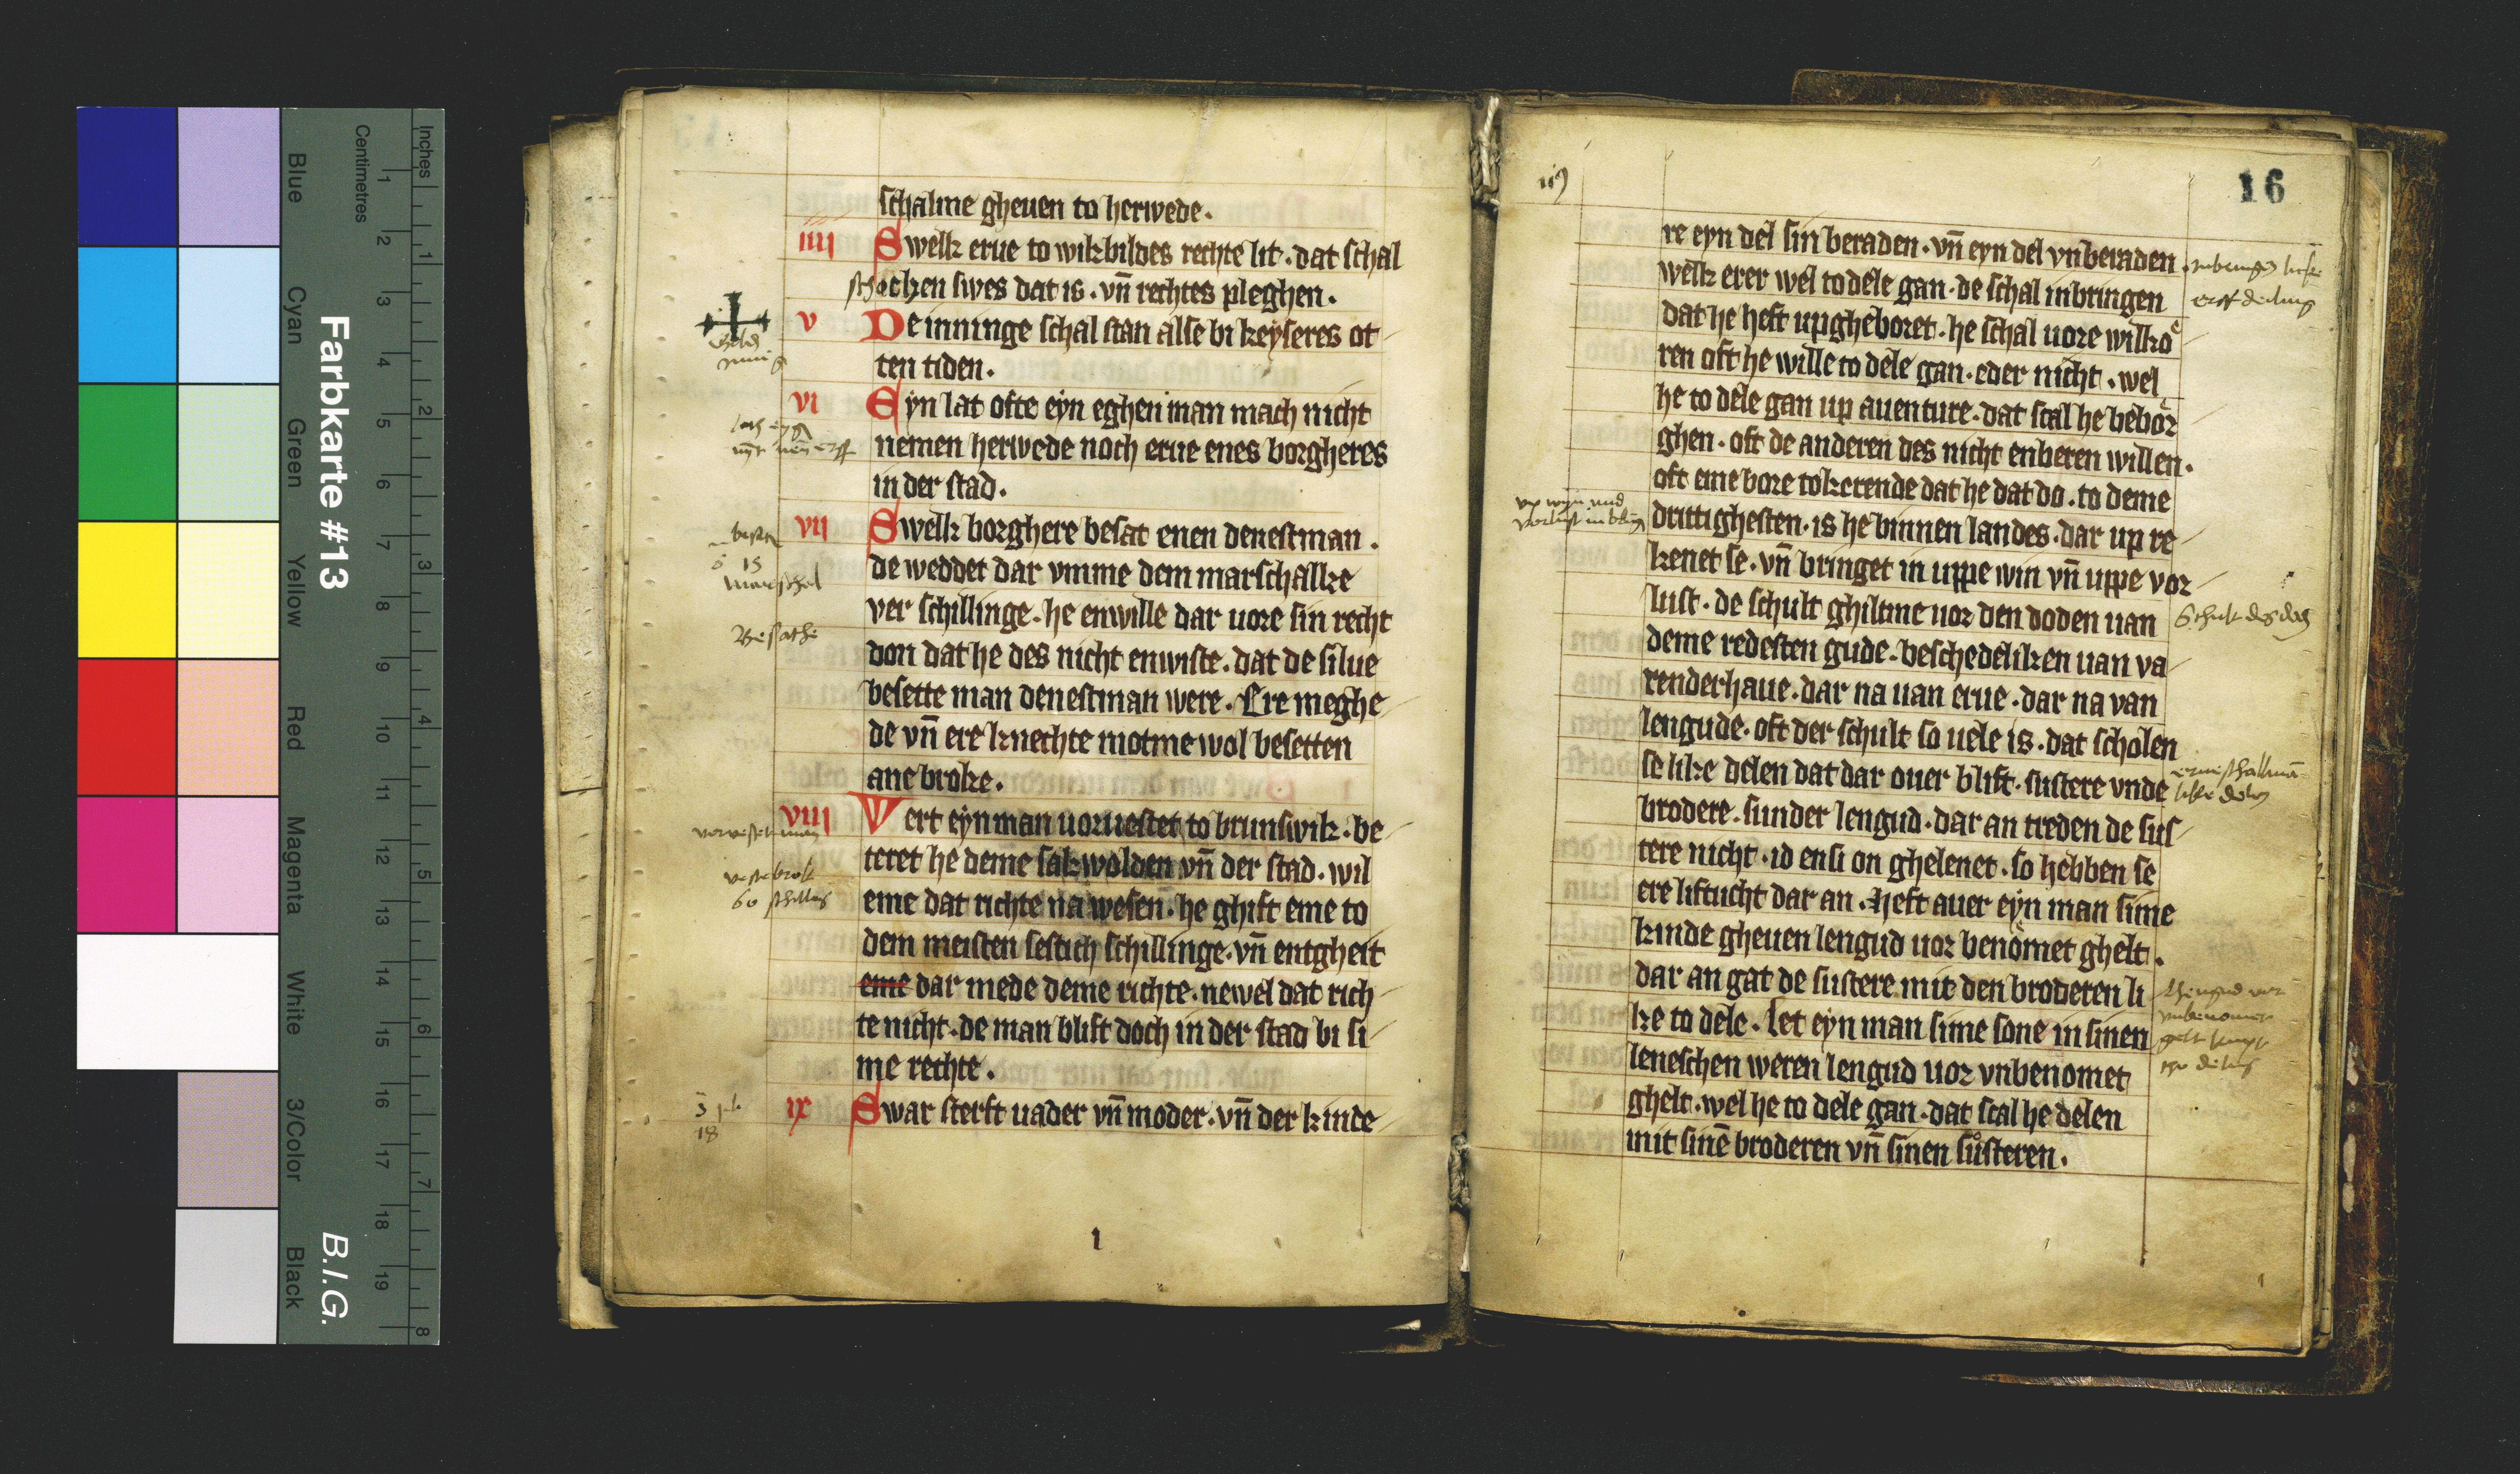 schalme gheuen to herwede.
IIII Swelk erue to wikbildes rechte lit. dat schal
schocken swes dat is. vn̄ rechtes pleghen.
V De inninge schal stan alse bi keyseres ot
ten tiden.
VI Eyn lat ofte eyn eghen man mach nicht
nemen herwede noch erue enes borgheres
in der stad.
VII Swelk borghere besat enen denestman.
de weddet dar vmme dem marschalke
ver schillinge. he enwille dar uore sin recht
don dat he des nicht enwiste. dat de silue
besette man denestman were. Ere meghe
de vn̄ ere knechte motme wol besetten
ane broke.
VIII Wert eyn man uoruestet to brunswik. be
teret he deme sakwolden vn̄ der stad. wil
eme dat richte na wesen. he ghift eme to
dem meisten sestich schillinge. vn̄ entgheit
eme dar mede deme richte. newel dat rich
te nicht. de man blift doch in der stad bi si
me rechte.
IX Swar sterft uader vn̄ moder. vn̄ der kinde
Besathe
marschal
60 schilling
18
I
16
re eyn del sin beraden. vn̄ eyn del vnberaden.
welk erer wel to dele gan. de schal inbringen
dat he heft upgheboret. he schal uore wilkoͤ
ren oft he wille to dele gan. eder nicht. wel
he to dele gan up auenture. dat scal he beboͤr
ghen. oft de anderen des nicht enberen willen.
oft eme bore tokerende dat he dat do. to deme
druttighesten. is he binnen landes. dar up re
kenet se. vn̄ bringet in uppe win vn̄ uppe vor
lust. de schult ghiltme uor den doden uan
deme redesten gude. beschedeliken uan va
renderhaue. dar na uan erue. dar na van
lengude. oft der schult so uele is. dat scholen
se like delen dat dar ouer blift. sustere vnde
brodere. sunder lengud. dar an treden de sus
tere nicht. id ensi on ghelenet. so hebben se
ere liftucht dar an. Heft auer eyn man sime
kinde gheuen lengud uor benomet ghelt.
dar an gat de sustere mit den broderen li
ke to dele. Let eyn man sime sone in sinen
leneschen weren lengud uor vnbenomet
ghelt. wel he to dele gan. dat scal he delen
mit sinē broderen vn̄ sinen suͦsteren.
Inches
Centimetres
Farbkarte #13
B.I.G.
Blue
Cyan
Green
Yellow
Red
Magenta
White
3/Color
Black
1 2 3 4 5 6 7 8
1 2 3 4 5 6 7 8 9 10 11 12 13 14 15 16 17 18 19